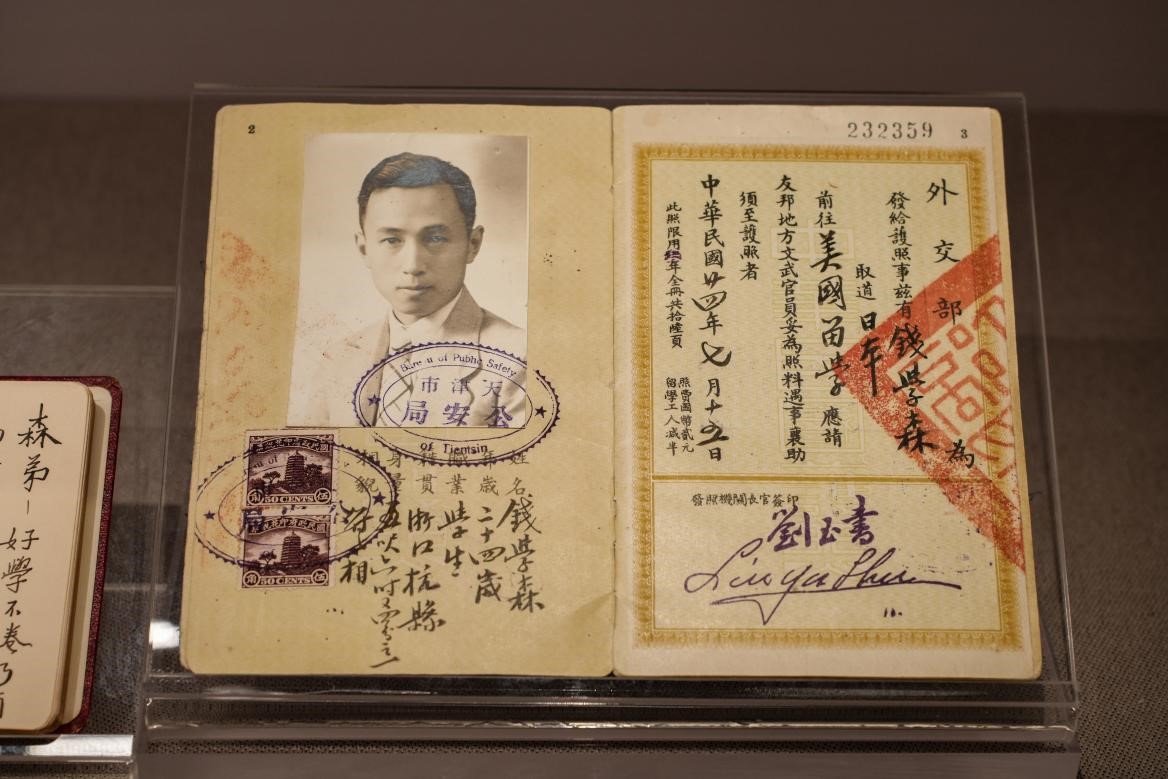 森弟一
好學不卷
2
Bureau of Public Safety
天津市
公安局
of Tientsin
50 CENTS
50 CENTS
姓名 錢學森
年歲 二十四歲
職業 學生
籍貫 浙江杭縣
身量 五呎六吋
相貌
232359
3
外交部 為
發給護照事茲有錢學森
取道日本
前往美國留學應請
友邦地方文武官員妥為照料遇事襄助
須至護照者
中華民國廿四年七月十五日
此照限用年全冊共拾陸頁
照費國幣貳元
留學工人減半
發照機關長官簽印
劉玉書
Liu Yu Shu